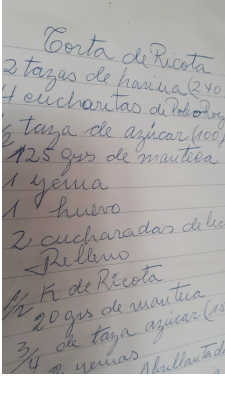 Torta de Ricota
2 tazas de harina (240
4 cucharitas de Polvo Roy
1/2 taza de azúcar (100)
125 grs de manteca
1 yema
1 huevo
2 cucharadas de lec
Relleno
1/2 K de Ricota
20 grs de manteca
3/4 de taza azúcar (15
2 yemas Abrillantada